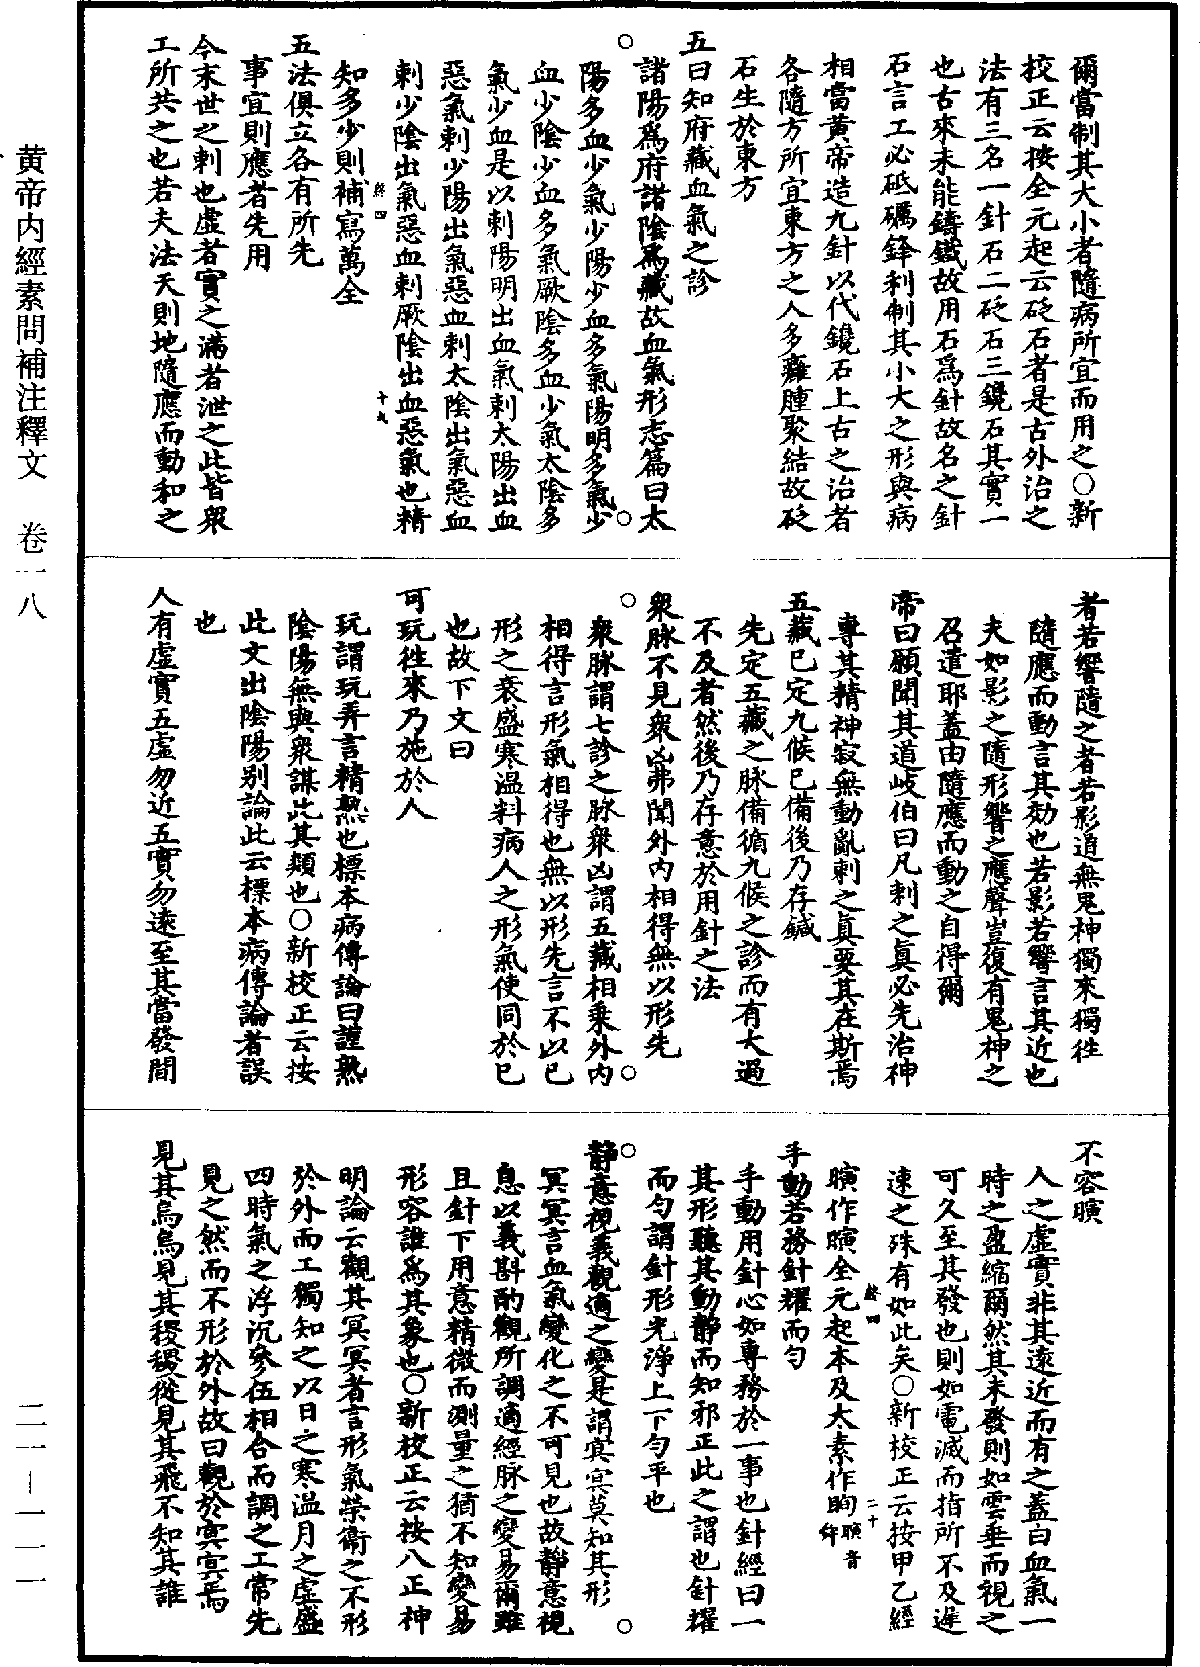 爾當制其大小者隨病所宜而用之〇新
挍正云按全元起云砭石者是古外治之
法有三名一針石二砭石三鑱石其實一
也古來未能鑄鐵故用石為針故名之針
石言工必砥礪鋒利制其小大之形與病
相當黃帝造九針以代鑱石上古之治者
各隨方所宜東方之人多癰腫聚結故砭
石生於東方
五曰知府藏血氣之診
諸陽為府諸陰為藏故血氣形志篇曰太
陽多血少氣少陽少血多氣陽明多氣少
血少陰少血多氣厥陰多血少氣太陰多
氣少血是以刺陽明出血氣刺太陽出血
惡氣刺少陽出氣惡血刺太陰出氣惡血
刺少陰出氣惡血刺厥陰出血惡氣也精
知多少則補寫萬全
終四
十九
五法俱立各有所先
事宜則應者先用
今末世之刺也虛者實之滿者泄之此皆衆
工所共之也若夫法天則地隨應而動和之
者若響隨之者若影道無鬼神獨來獨往
隨應而動言其効也若影若響言其近也
夫如影之隨形響之應聲豈復有鬼神之
召遣耶蓋由隨應而動之自得爾
帝曰願聞其道岐伯曰凡刺之眞必先治神
專其精神寂無動亂刺之眞要其在斯焉
五藏已定九候已備後乃存鍼
先定五藏之脉備循九候之診而有大過
不及者然後乃存意於用針之法
衆脉不見衆凶弗聞外内相得無以形先
衆脉謂七診之脉衆凶謂五藏相乗外内
相得言形氣相得也無以形先言不以已
形之衰盛寒温料病人之形氣使同於已
也故下文曰
可玩往來乃施於人
玩謂玩弄言精熟也標本病傳論曰謹熟
陰陽無與衆謀此其類也〇新校正云按
此文出陰陽别論此云標本病傳論者誤
也
人有虛實五虛勿近五實勿遠至其當發間
不容瞚
人之虛實非其遠近而有之蓋自血氣一
時之盈縮爾然其未發則如雲垂而視之
可久至其發也則如電滅而指所不及遲
速之殊有如此矣〇新校正云按甲乙經
瞚作瞋全元起本及太素作眴瞚音舜
終四
二十
手動若務針耀而勻
手動用針心如專務於一事也針經曰一
其形聽其動静而知邪正此之謂也針耀
而勻謂針形光淨上下勻平也
静意視義觀適之變是謂冥冥莫知其形
冥冥言血氣變化之不可見也故静意視
息以義斟酌觀所調適經脉之變易爾雖
且針下用意精微而測量之猶不知變易
形容誰為其象也〇新校正云按八正神
明論云觀其冥冥者言形氣榮衞之不形
於外而工獨知之以日之寒温月之虛盛
四時氣之浮沉參伍相合而調之工常先
見之然而不形於外故曰觀於冥冥焉
見其烏烏見其稷稷從見其飛不知其誰
黄帝内經素問補注釋文　卷一八
二一—一一一